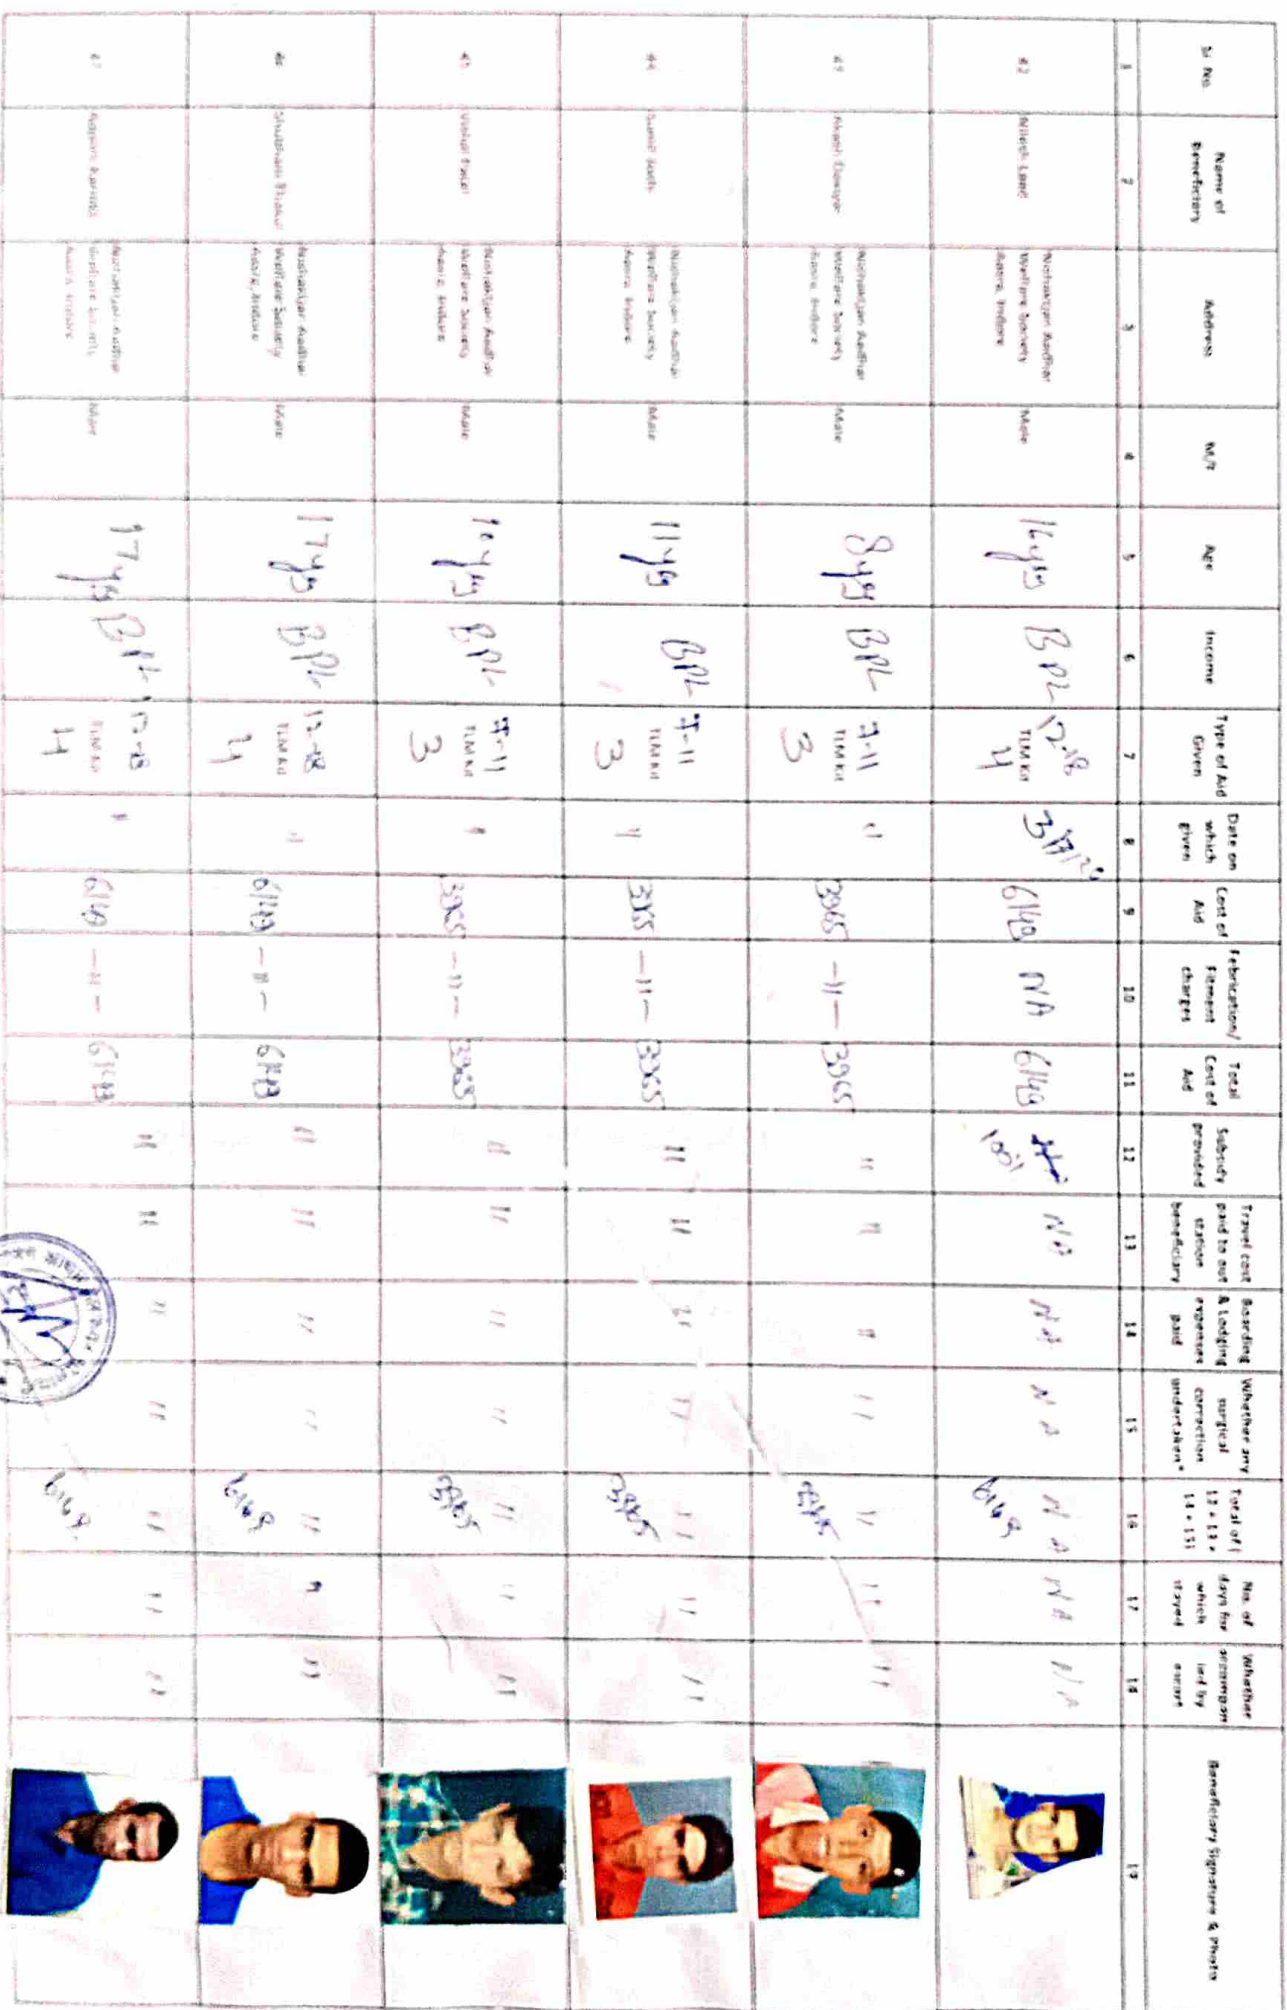 Sl No
Name of
Beneficiary
Address
M/F
Age
Income
Type of Aid
Given
Date on
which
given
Cost of
Aid
Febrication/
Fitment
charges
Total
Cost of
Aid
Subsidy
provided
Travel cost
paid to out
station
beneficiary
Boarding
& Lodging
expenses
paid
Whether any
surgical
correction
undertaken*
Total of (
12 + 13 +
14 + 15)
No. of
days for
which
stayed
Whether
accompan
ied by
escort
Beneficiary Signature & Photo
1 2 3 4 5 6 7 8 9 10 11 12 13 14 15 16 17 18 19
42
Nilesh
Aadhar
Welfare Society
Indore
Male
16 yrs
BPL
12-18
TLM Kit
4
6149
NA
6149
100%
NA
NA
NA
NA
6149
NA
NA
43
Akash
Aadhar
Welfare Society
Indore
Male
8 yrs
BPL
7-11
TLM Kit
3
"
3965
-"-
3965
"
"
"
"
"
3965
"
"
44
Aadhar
Welfare Society
Indore
Male
11 yrs
BPL
7-11
TLM Kit
3
"
3965
-"-
3965
"
"
"
"
"
3965
"
"
45
Vishal
Aadhar
Welfare Society
Indore
Male
10 yrs
BPL
7-11
TLM Kit
3
"
3965
-"-
3965
"
"
"
"
"
3965
"
"
46
Shubham Thakur
Aadhar
Welfare Society
Indore
Male
17 yrs
BPL
12-18
TLM Kit
4
"
6149
-"-
6149
"
"
"
"
"
6149
"
"
47
Aadhar
Welfare Society
Indore
Male
17 yrs
BPL
12-18
TLM Kit
4
"
6149
-"-
6149
"
"
"
"
"
6149
"
"